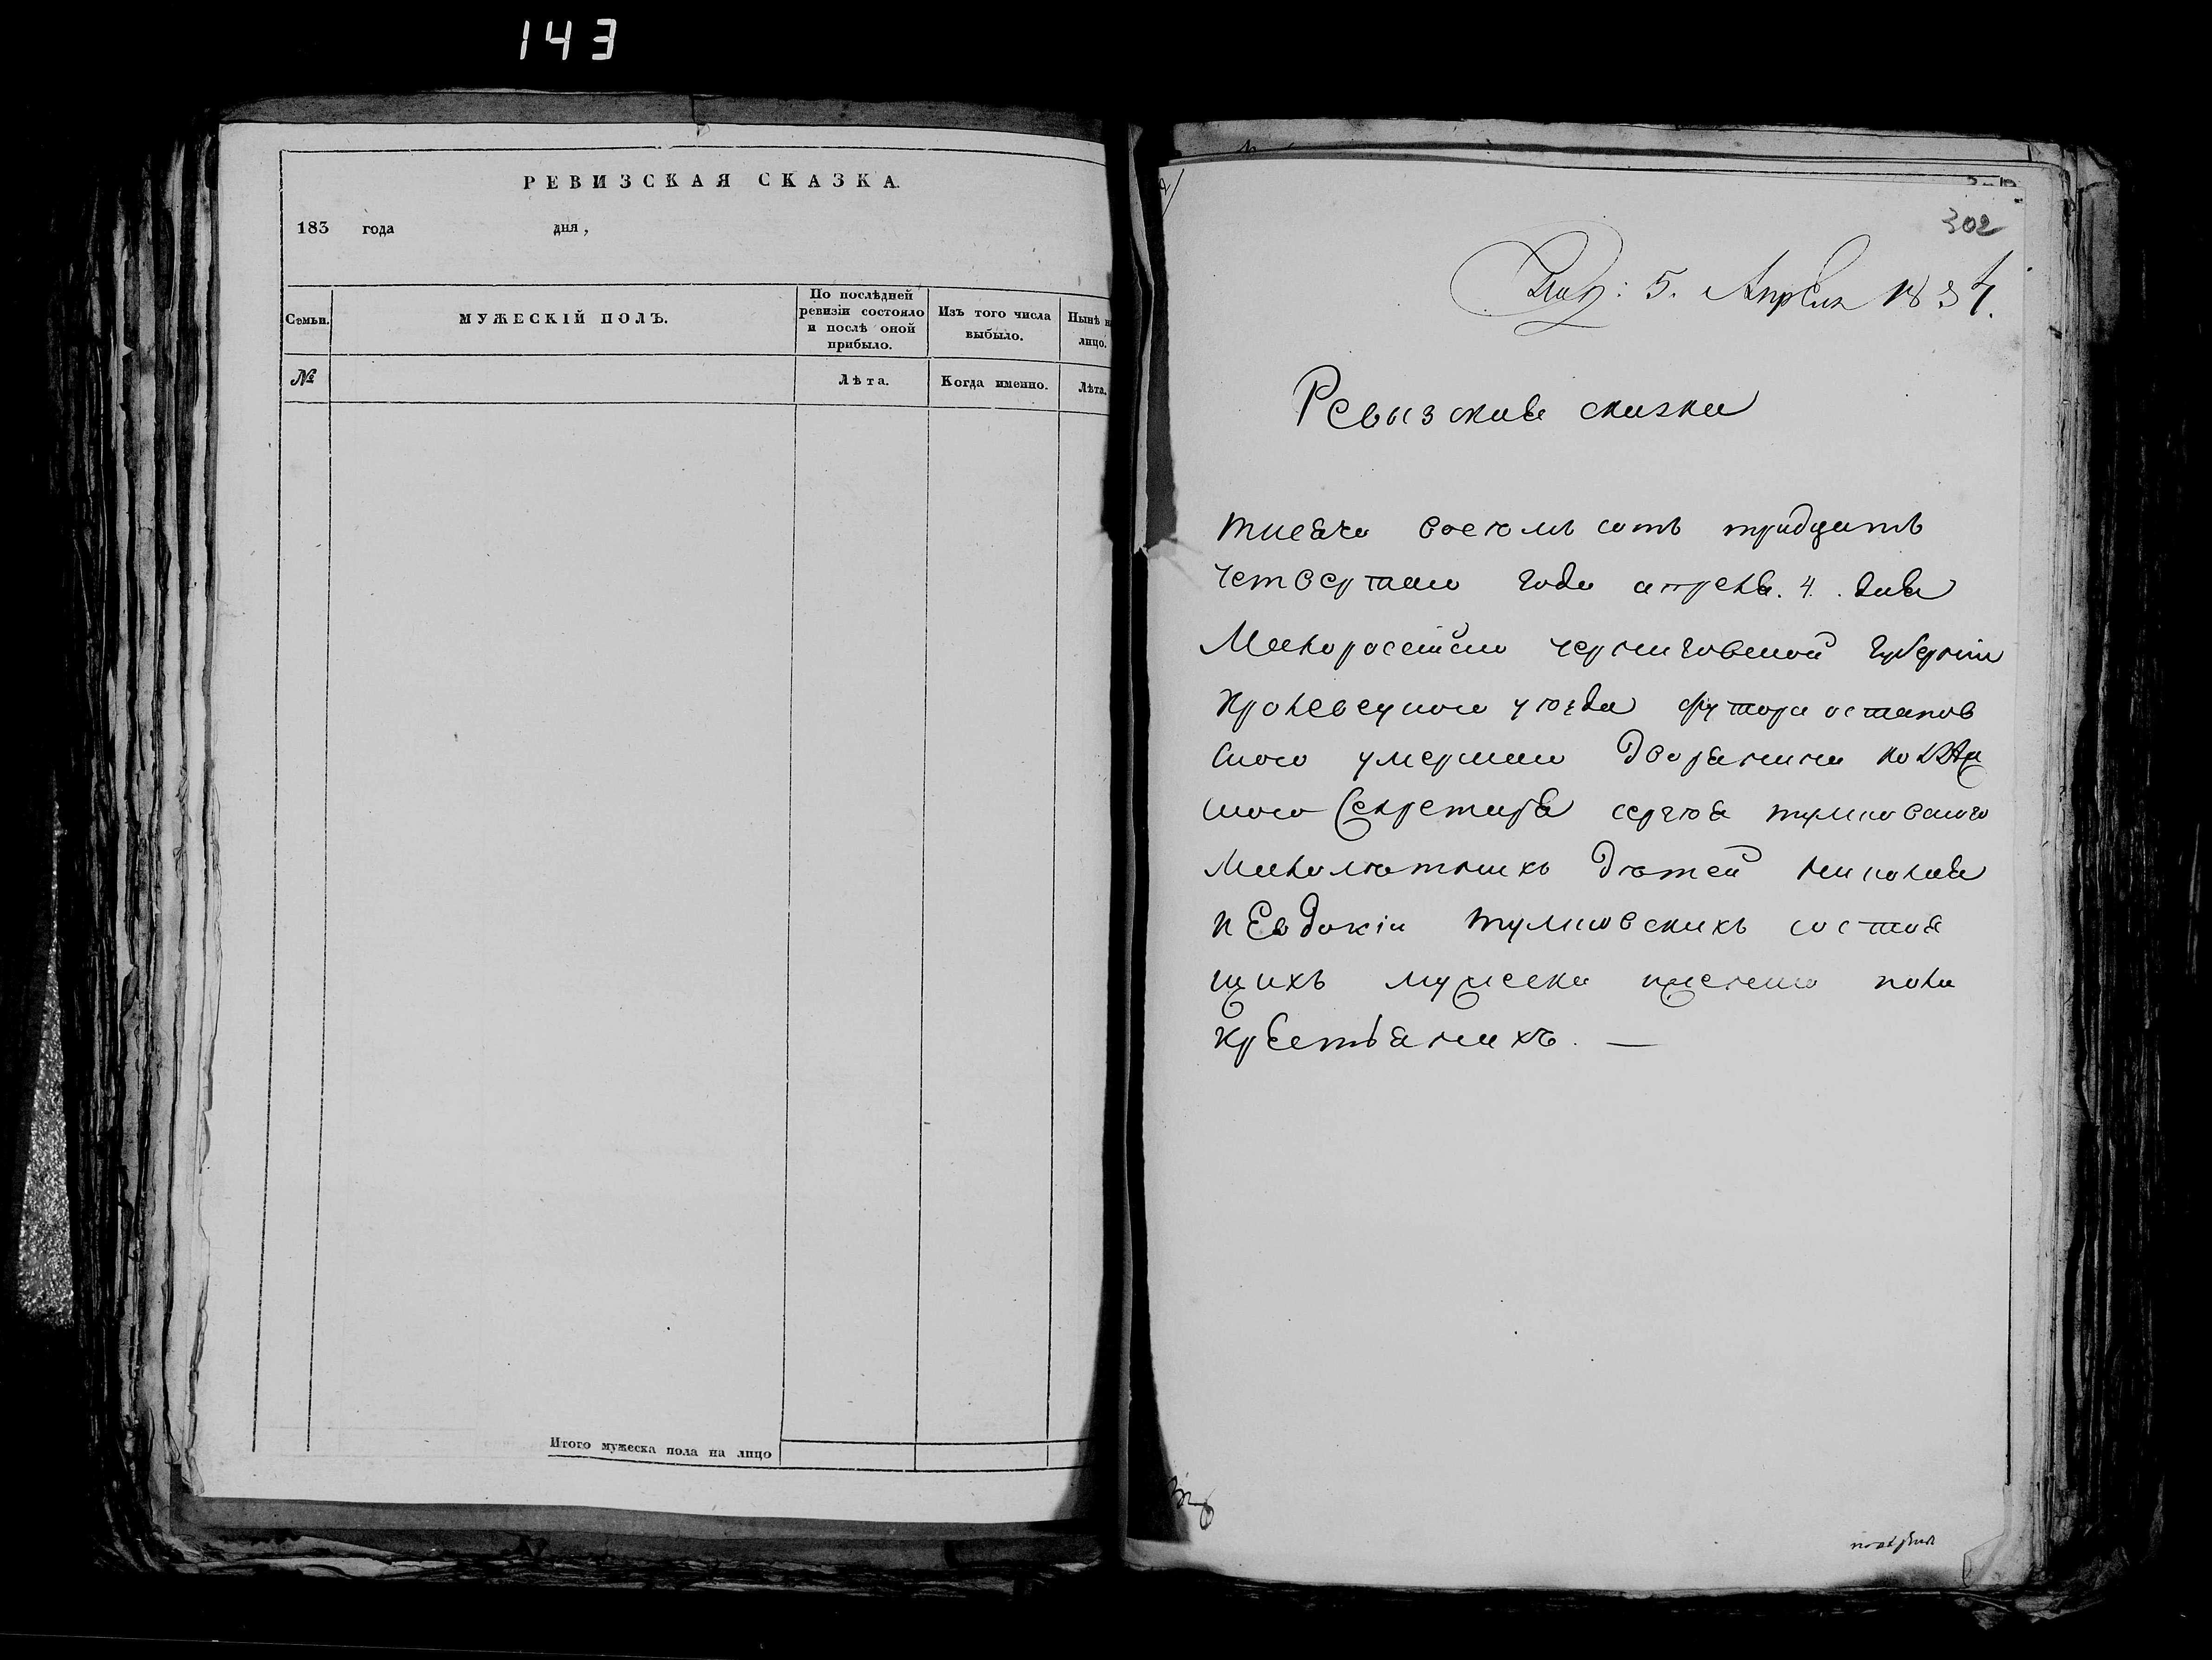 143
РЕВИЗСКАЯ СКАЗКА.
183 года дня,
Семьи.
МУЖЕСКІЙ ПОЛЪ.
По послѣдней
ревизіи состояло
и послѣ оной
прибыло.
Изъ того числа
выбыло.
Нынѣ н
лицо.
№
Лѣта.
Когда именно.
Лѣта.
Итого мужеска пола на лицо
302
5. Апрѣля 1834.
Ревызская сказка
тисяча восюмь сотъ тридцать
четвертаго года апреля. 4. дня
Малоросейско черниговской губерніи
кролевецкого уюзда футора останов
ского умершаго дворянина
ского Секретаря сергюя тумковского
малолютнихъ дютей николая
и Евдокіи тумковскихъ состоя
щихъ мужеска женско пола
крестьянихъ. —